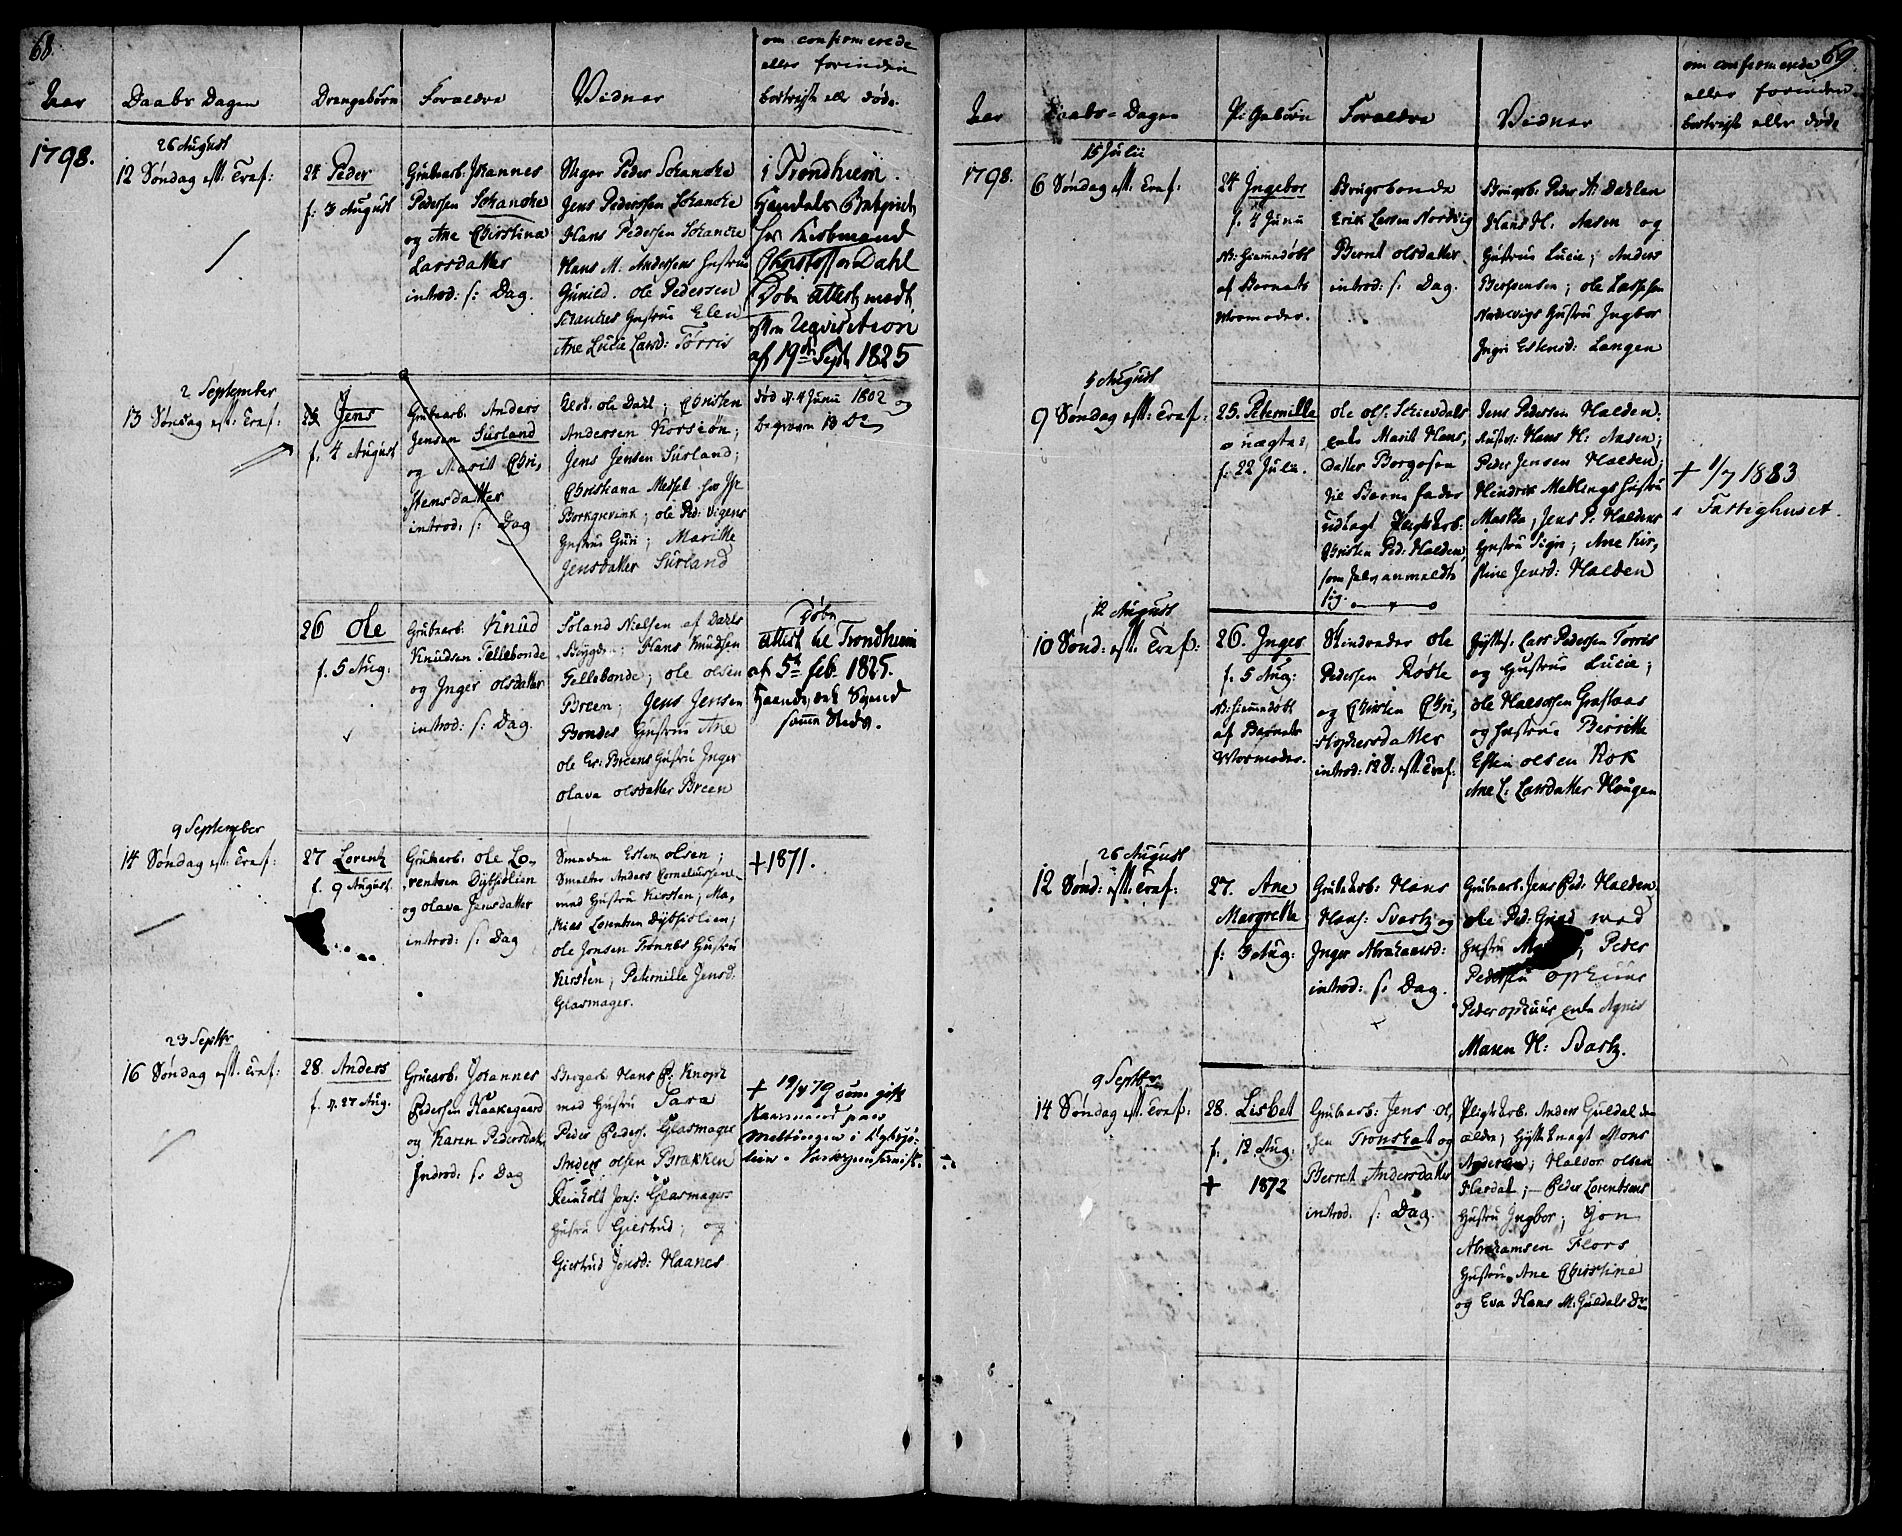 68.
Aar
Daabs Dagen
Drengebørn
Forældre
Vidner
om confirmerede
eller forinden
bortrejst eller døde.
1798.
26 August
12 Søndag eft: Tref:
24 Peder
f: 3 August
Grubearb: Johannes
Pedersen Schancke
og Ane Christina
Larsdatter
introd: s: Dag.
Stiger Peder Schancke
Jens Pedersen Schancke
Hans Pedersen Schancke
Hans M. Andersens Hustru
Gunild. Ole Pedersen
Schanckes Hustru Elen
Ane Lucie Larsd: Torris
i Trondhiem.
Handels
hos Kiøbmand
Christoffer Dahl
Døbe Attest medt
efter Reqvisition
af 19de Sept 1825
2 September
13 Søndag eft: Tref:
25 Jens
f. 4 August
Grubearb: Anders
Jensen Surland
og Marit Chri,
stensdatter
introd: s: Dag
Ole Dahl; Christen
Andersen Korsiøn;
Jens Jensen Surland;
Christiana Messel
Borkgrevink; Ole Ped: Vigens
Hustru Guri; Maritte
Jensdatter Surland
død d. 4 Junii 1802 og
begraven 13 Do
26 Ole
f. 5 Aug:
Grubearb: Knud
Knudsen Tellebonde
og Inger Olsdatter
introd: s: Dag.
Soland Nielsen af Dahls
Bøygden; Hans Knudsen
Tellebonde; Ole Olsen
Breen; Jens Jensen
Bondes Hustru Ane
Ole Er: Breens Hustru Inger
Olava Olsdatter Breen
Døbe
attest til Trondhiem
af 5te feb. 1825.
samme Steds.
9 September
14 Søndag eft: Tref:
27 Lorentz
f. 9 August.
Grubearb: Ole Lo,
rentsen Dybsiølien
og Olava Jensdatter
introd: s: Dag
Smeden Esten Olsen;
Smelter Anders Corneliussen
med Hustru Kirsten; Ma,
thias Lorentsen Dybsiølien;
Ole Jonsen Trønnes Hustru
Kirsten; Peternille Jensd:
Glasmager.
+ 1871.
23 Septbr
16 Søndag eft. Tref:
28. Anders
f. d. 27 Aug.
Gruearb. Johannes
Pedersen Kaakegaard
og Karen Pedersdat.
Introd: s: Dag
Bergarb Hans P: Knoph
med Hustru Sara
Peder Peders. Glasmager
Anders Olsen Brækken
Reinholt Jons: Glasmagers
Hustru Giertrud; og
Giertrud Jonsd: Haanes
+ 19/4 79 som gift
Kaarmand paa
Meltingen i
69.
Aar
Daabs-Dagen
Pigebørn
Forældre
Vidner
om confirmerede
eller forinden
bortrejst eller døde
1798.
15 Julii
6 Søndag eft: Tref:
24 Ingebor
f. 4 Junii
NB: Hiemmedøbt
af Barnets
Mormoder.
Brugsbonde
Erik Larsen Nordvig
Berret Olsdatter
introd: s: Dag.
Brugsb: Peder A: Dahlen
Hans H. Aasen og
Hustru Lucie; Anders
Berthensen; Ole Larsen
Nordvigs Hustru Ingbor
Ingri Estensd: Langen
5 August
9 Søndag eft: Tref:
25. Peternille
uægte,
f. 22 Julii.
Ole Ols: Skievdals
enke Marit Hans,
datter Borgosen
til Barne fader
udlagt Pligtarb:
Christen Ped: Halden,
som selv anmeldte
sig.
Jens Pedersen Halden:
Hans H: Aasen;
Peder Jensen Halden;
Hindrik Methlings Hustru
Martha, Jens P: Haldens
Hustru Sigri; Ane Kir,
stine Jensd: Halden
+ 1/7 1883
i Fattighuset.
12 August
10 Sønd: eft: Tref:
26. Inger
f. 5 Aug:
NB: Hiemmedøbt
af Barnets
Mormoder.
Ole
Pedersen Røste
og Chirsten Chri,
stophersdatter
introd: 12 S: eft: Tref:
Hytts: Lars Pedersen Torris
og Hustrue Lucie;
Ole Halvorsen Graftaas
og Hustru Berritte
Esten Olsen Kok
Ane L: Larsdatter Haugen
26 August
12 Sønd: eft: Tref:
27. Ane
Margrethe
f. 3 Aug:
Grubearb: Hans
Hans: Svartz og
Inger Abrahamsd:
introd: s: Dag.
Grubearb. Jens Ped: Halden;
Ole Ped: Grind med
Hustru; Peder
Pedersen Ophuus
Peder Ophuus enke Agnis
Maren H: Svartz.
9 Septbr
14 Søndag eft: Tref:
28. Lisbet
f. 12 Aug.
+ 1872
Grubearb: Jens Ol,
sen Tronshat og
Berret Andersdatter
introd. s: Dag.
Pligtarb. Anders Guldal den
ældre; Hyttknegt Mons
Andersen; Halvor Olsen
Flordal; - Peder Lorentsens
Hustru Ingbor; Jon
Abrahamsen Flors
Hustru Ane Christine
og Eva Hans M: Guldals Dr